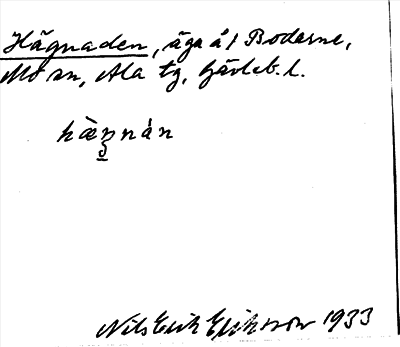 Hägnaden, äga å/ Bodarne,
Mo sn, Ala tg, Gävleb. l.
hæ̀ŋnán
Nils Erik Eriksson 1933